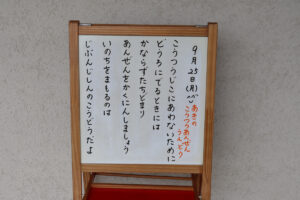 9月25日(月)
あきの
こうつうあんぜん
うんどう
こうつうじこにあわないために
どうろにでるときには
かならずたちどまり
あんぜんをかくにんしましょう
いのちをまもるのは
じぶんじしんのこうどうだよ